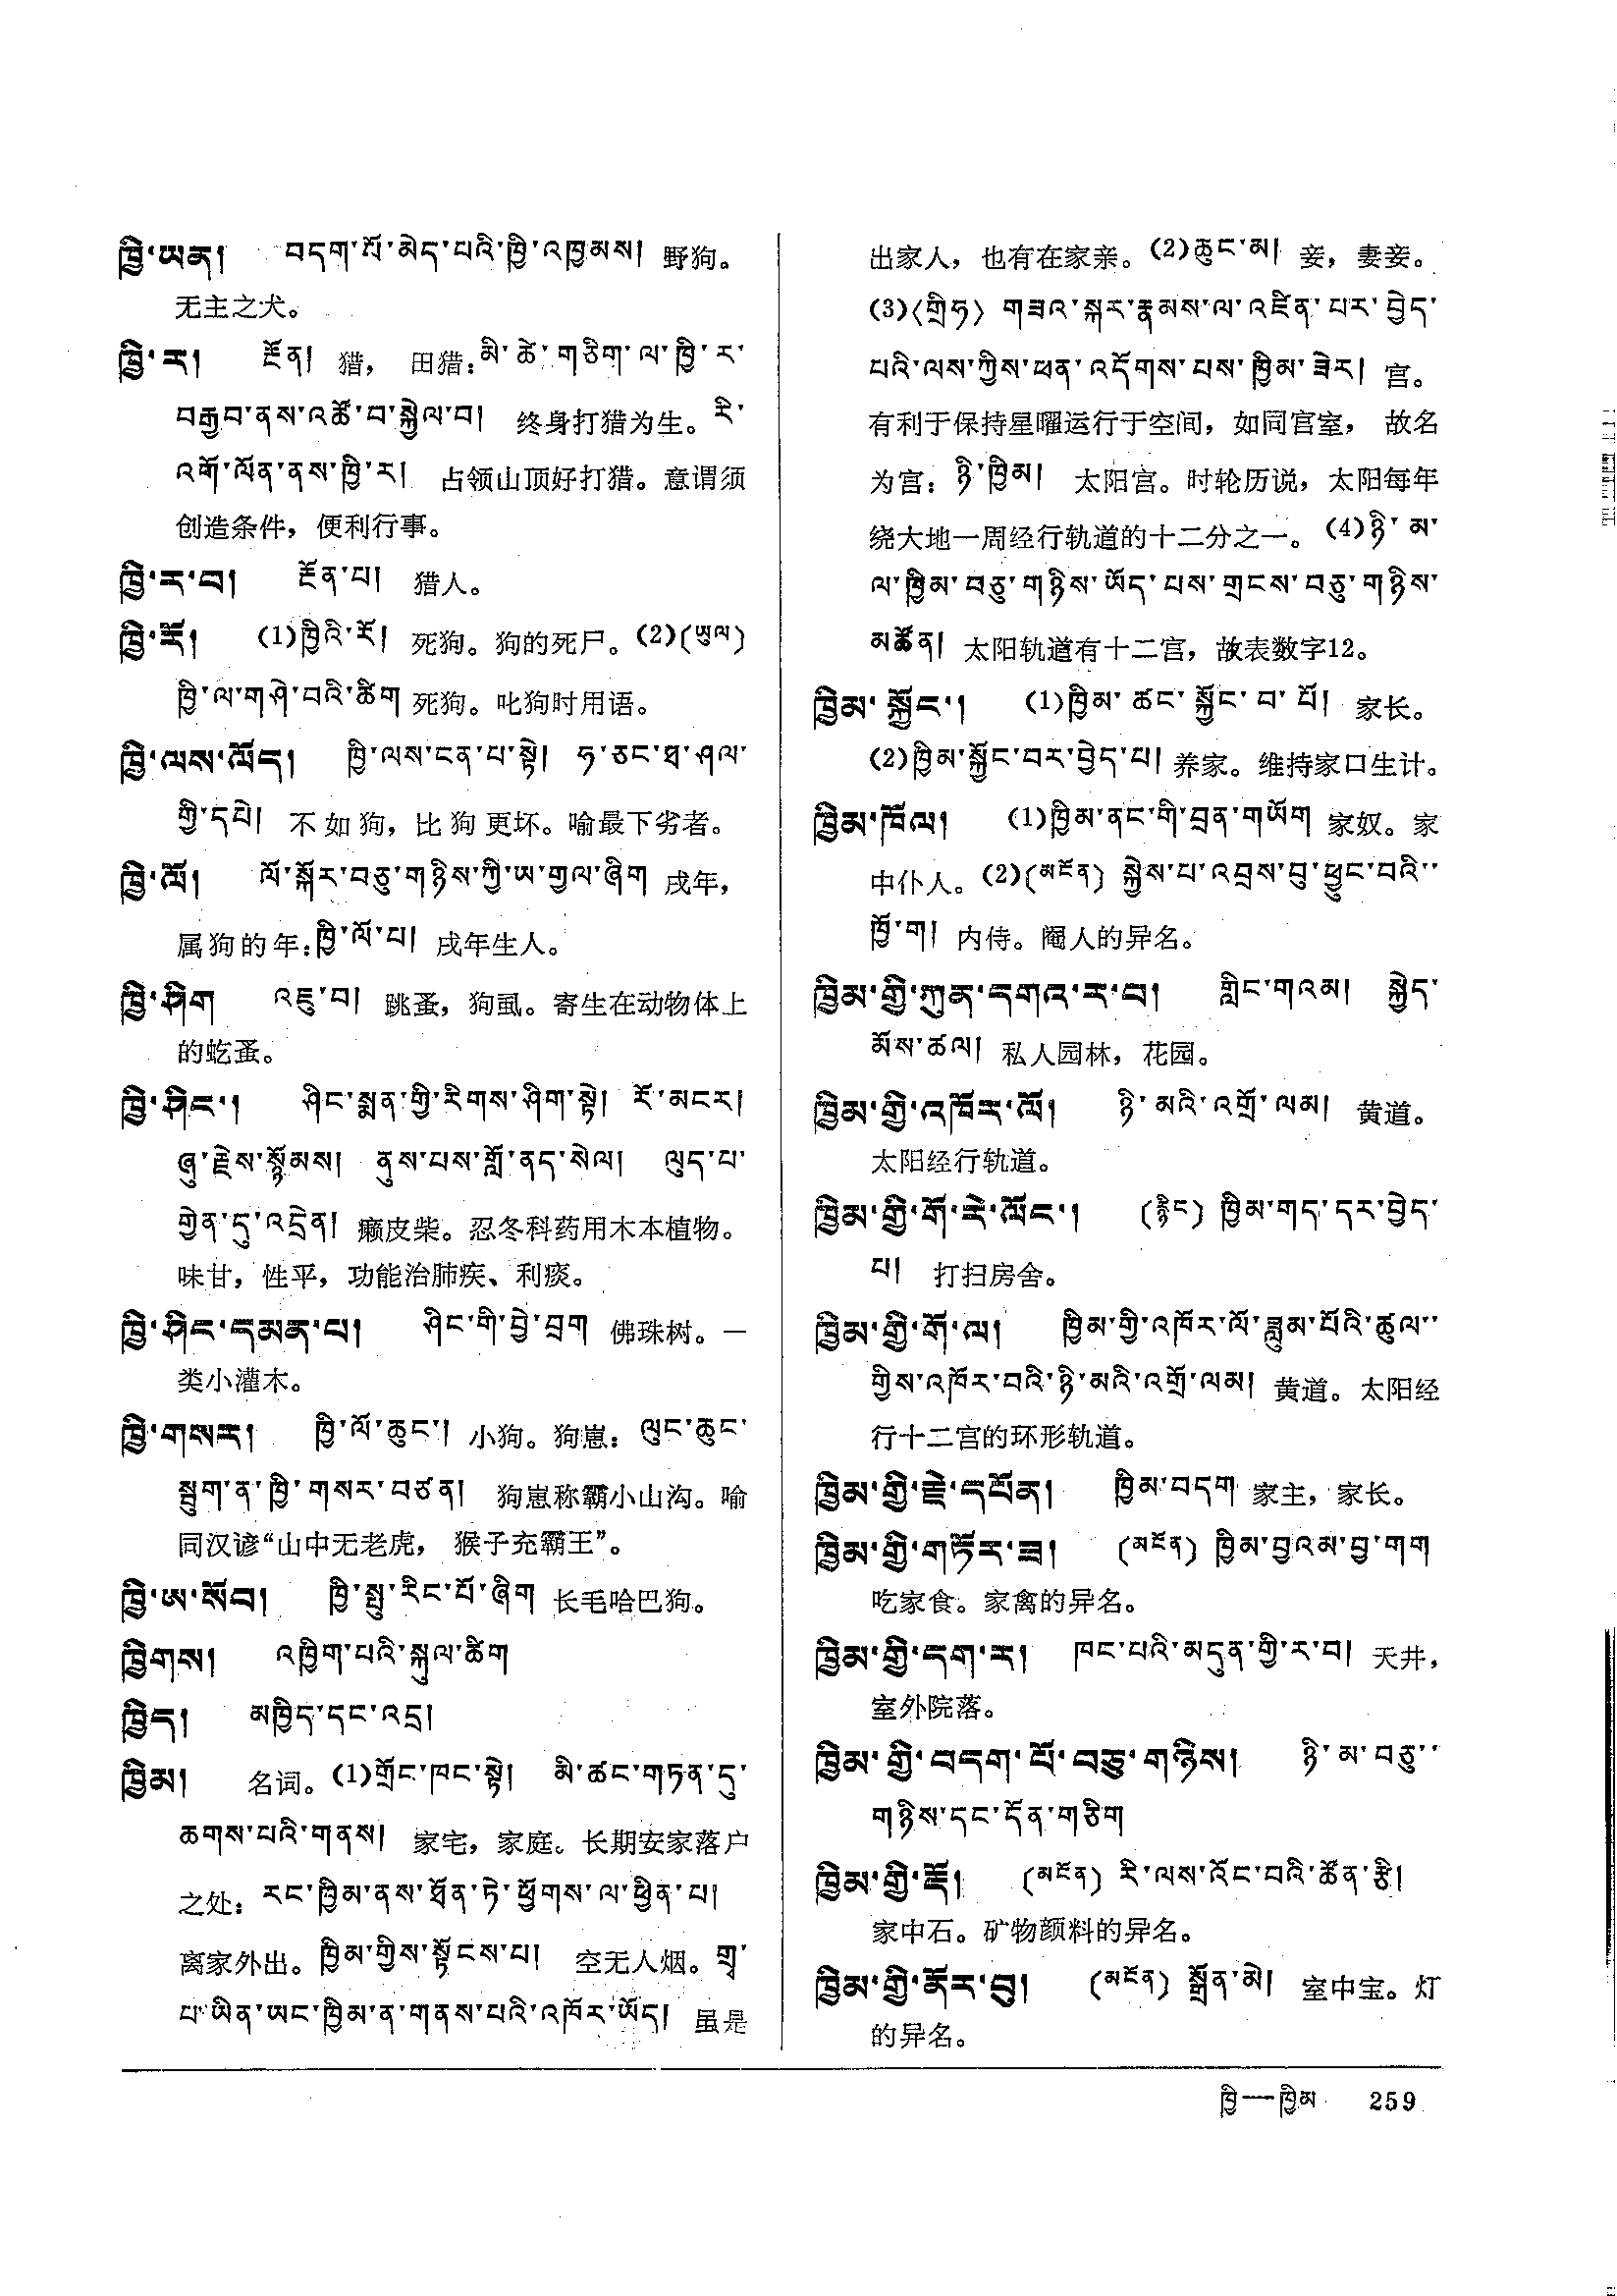 ཁྱི་ཡན། བདག་པོ་མེད་པའི་ཁྱི་འཁྱམས། 野狗。
无主之犬。
ཁྱི་ར། རྔོན། 猎， 田猎：མི་ཚེ་གཅིག་ལ་ཁྱི་ར་
བརྒྱབ་ནས་འཚོ་བ་སྐྱེལ་བ། 终身打猎为生。རི་
འགོ་ལོན་ནས་ཁྱི་ར། 占领山顶好打猎。意谓须
创造条件，便利行事。
ཁྱི་ར་བ། རྔོན་པ། 猎人。
ཁྱི་རོ། (1)ཁྱིའི་རོ། 死狗。狗的死尸。(2)(ཡུལ)
ཁྱི་ལ་གཤེ་བའི་ཚིག 死狗。叱狗时用语。
ཁྱི་ལས་ལོད། ཁྱི་ལས་ངན་པ་སྟེ། ཧ་ཅང་ཐ་ཤལ་
གྱི་དཔེ། 不如狗，比狗更坏。喻最下劣者。
ཁྱི་ལོ། ལོ་སྐོར་བཅུ་གཉིས་ཀྱི་ཡ་གྱལ་ཞིག 戌年，
属狗的年：ཁྱི་ལོ་པ། 戌年生人。
ཁྱི་ཤིག འཇུ་བ། 跳蚤，狗虱。寄生在动物体上
的虼蚤。
ཁྱི་ཤིང་། ཤིང་སྨན་གྱི་རིགས་ཤིག་སྟེ། རོ་མངར།
ཞུ་རྗེས་སྙོམས། ནུས་པས་གློ་ནད་སེལ། ལུད་པ་
གྱེན་དུ་འདྲེན། 癞皮柴。忍冬科药用木本植物。
味甘，性平，功能治肺疾、利痰。
ཁྱི་ཤིང་དམན་པ། ཤིང་གི་བྱེ་བྲག 佛珠树。一
类小灌木。
ཁྱི་གསར། ཁྱི་ལོ་ཆུང་། 小狗。狗崽：ལུང་ཆུང་
སྦུག་ན་ཁྱི་གསར་བཙན། 狗崽称霸小山沟。喻
同汉谚“山中无老虎， 猴子充霸王”。
ཁྱི་ཨ་སོབ། ཁྱི་སྤུ་རིང་པོ་ཞིག 长毛哈巴狗。
ཁྱིགས། འཁྱིག་པའི་སྐུལ་ཚིག
ཁྱིད། མཁྱིད་དང་འདྲ།
ཁྱིམ། 名词。(1)གྲོང་ཁང་སྟེ། མི་ཚང་གཏན་དུ་
ཆགས་པའི་གནས། 家宅，家庭。长期安家落户
之处：རང་ཁྱིམ་ནས་ཐོན་ཏེ་ཕྱོགས་ལ་ཕྱིན་པ།
离家外出。ཁྱིམ་གྱིས་སྟོངས་པ། 空无人烟。གྲྭ་
པ་ཡིན་ཡང་ཁྱིམ་ན་གནས་པའི་འཁོར་ཡོད། 虽是
出家人，也有在家亲。(2)ཆུང་མ། 妾，妻妾。
(3)〈གྲྀཧ〉 གཟའ་སྐར་རྣམས་ལ་འཛིན་པར་བྱེད་
པའི་ལས་ཀྱིས་ཕན་འདོགས་པས་ཁྱིམ་ཟེར། 宫。
有利于保持星曜运行于空间，如同宫室， 故名
为宫：ཉི་ཁྱིམ། 太阳宫。时轮历说，太阳每年
绕大地一周经行轨道的十二分之一。(4)ཉི་མ་
ལ་ཁྱིམ་བཅུ་གཉིས་ཡོད་པས་གྲངས་བཅུ་གཉིས་
མཚོན། 太阳轨道有十二宫，故表数字12。
ཁྱིམ་སྐྱོང་། (1)ཁྱིམ་ཚང་སྐྱོང་བ་པོ། 家长。
(2)ཁྱིམ་སྐྱོང་བར་བྱེད་པ། 养家。维持家口生计。
ཁྱིམ་ཁོལ། (1)ཁྱིམ་ནང་གི་བྲན་གཡོག 家奴。家
中仆人。(2)(མངོན) སྐྱེས་པ་འབྲས་བུ་ཕྱུང་བའི་་
ཁྱོ་ག 内侍。阉人的异名。
ཁྱིམ་གྱི་ཀུན་དགའ་ར་བ། གླིང་གའམ། སྐྱེད་
མོས་ཚལ། 私人园林，花园。
ཁྱིམ་གྱི་འཁོར་ལོ། ཉི་མའི་འགྲོ་ལམ། 黄道。
太阳经行轨道。
ཁྱིམ་གྱི་གོ་རེ་ལོང་། (རྙིང) ཁྱིམ་གད་དར་བྱེད་
པ། 打扫房舍。
ཁྱིམ་གྱི་གོ་ལ། ཁྱིམ་གྱི་འཁོར་ལོ་ཟླུམ་པོའི་ཚུལ་་
གྱིས་འཁོར་བའི་ཉི་མའི་འགྲོ་ལམ། 黄道。太阳经
行十二宫的环形轨道。
ཁྱིམ་གྱི་རྗེ་དཔོན། ཁྱིམ་བདག 家主，家长。
ཁྱིམ་གྱི་གཏོར་ཟ། (མངོན) ཁྱིམ་བྱའམ་བྱ་གག
吃家食。家禽的异名。
ཁྱིམ་གྱི་དག་ར། ཁང་པའི་མདུན་གྱི་ར་བ། 天井，
室外院落。
ཁྱིམ་གྱི་བདག་པོ་བཅུ་གཉིས། ཉི་མ་བཅུ་་
གཉིས་དང་དོན་གཅིག
ཁྱིམ་གྱི་རྡོ། (མངོན) རི་ལས་འོང་བའི་ཚོན་རྩི།
家中石。矿物颜料的异名。
ཁྱིམ་གྱི་ནོར་བུ། (མངོན) སྒྲོན་མེ། 室中宝。灯
的异名。
ཁྱི—ཁྱིམ 259